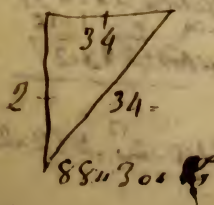 34
2
34=
88"30